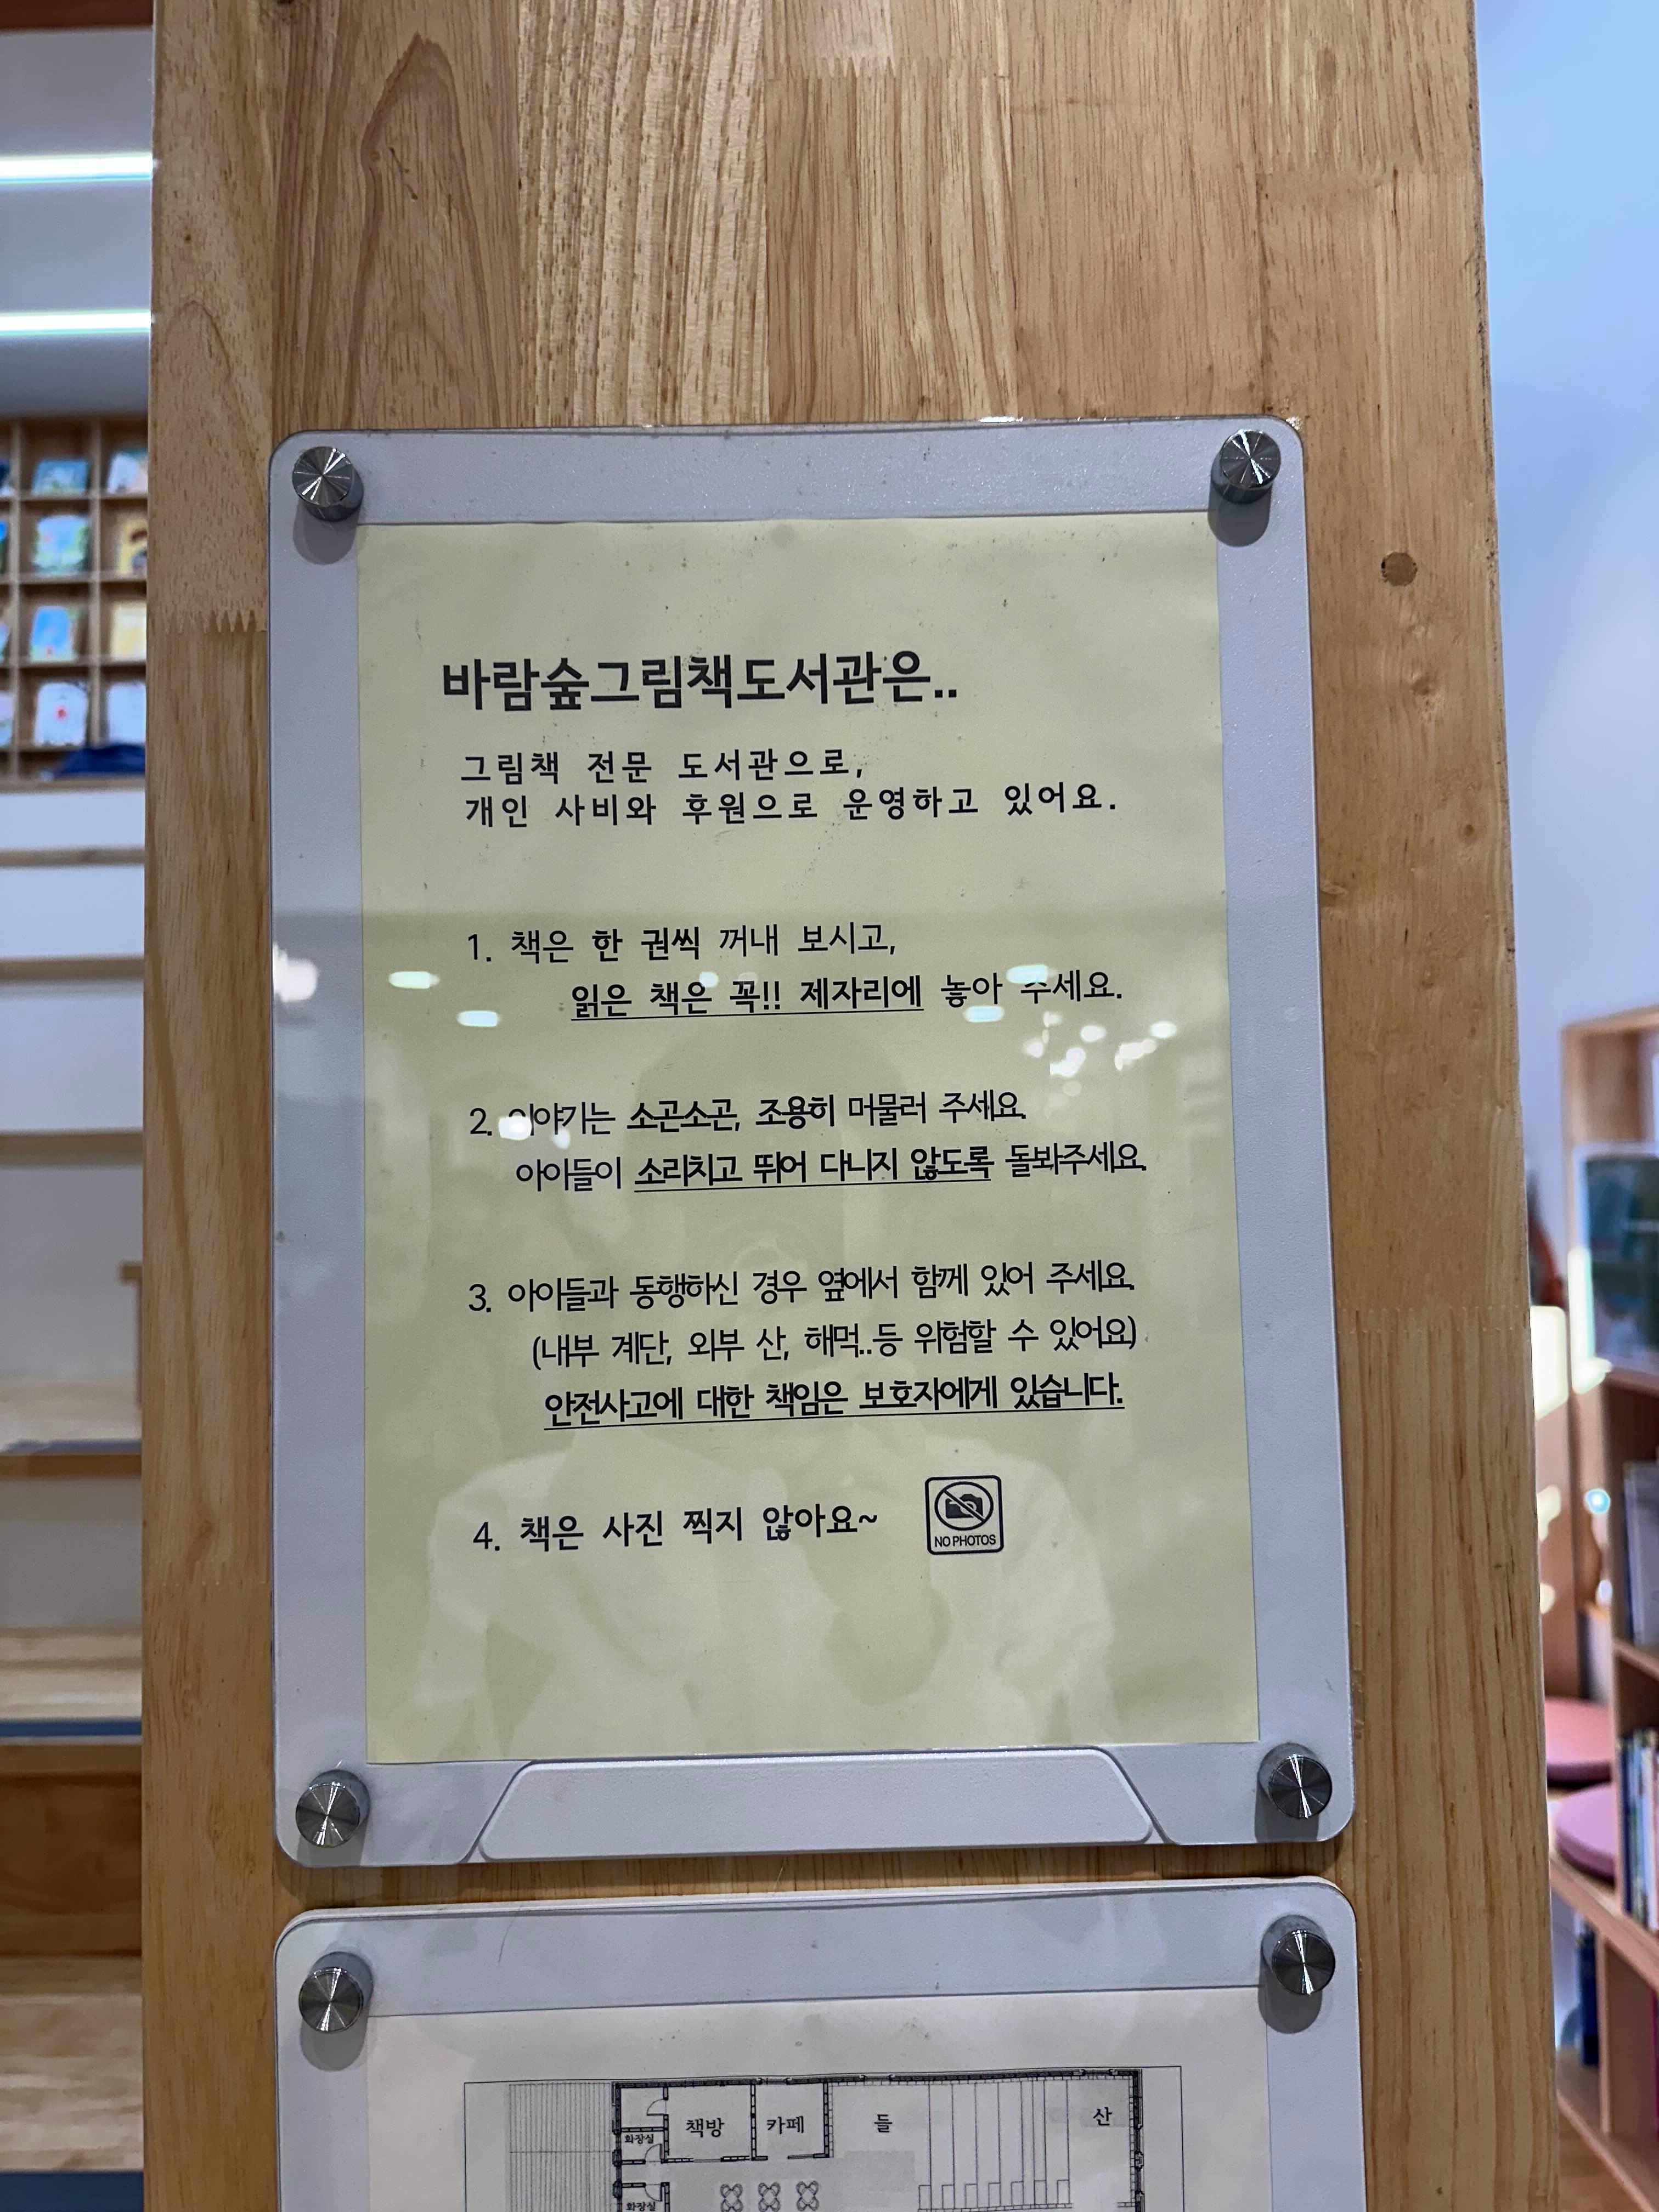 바람숲그림책도서관은..
그림책 전문 도서관으로,
개인 사비와 후원으로 운영하고 있어요.
1. 책은 한 권씩 꺼내 보시고,
읽은 책은 꼭!! 제자리에 놓아 주세요.
2. 이야기는 소곤소곤, 조용히 머물러 주세요.
아이들이 소리치고 뛰어 다니지 않도록 돌봐주세요.
3. 아이들과 동행하신 경우 옆에서 함께 있어 주세요.
(내부 계단, 외부 산, 해먹..등 위험할 수 있어요)
안전사고에 대한 책임은 보호자에게 있습니다.
4. 책은 사진 찍지 않아요~
NO PHOTOS
책방 카페 들 산
화장실
화장실